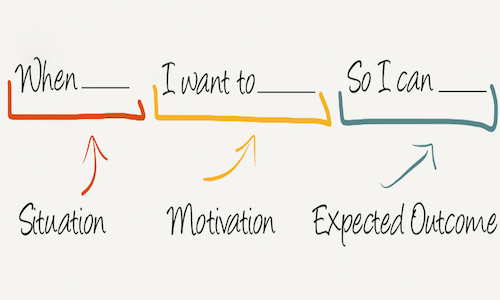 When ____ I want to ____ So I can ____
Situation Motivation Expected Outcome